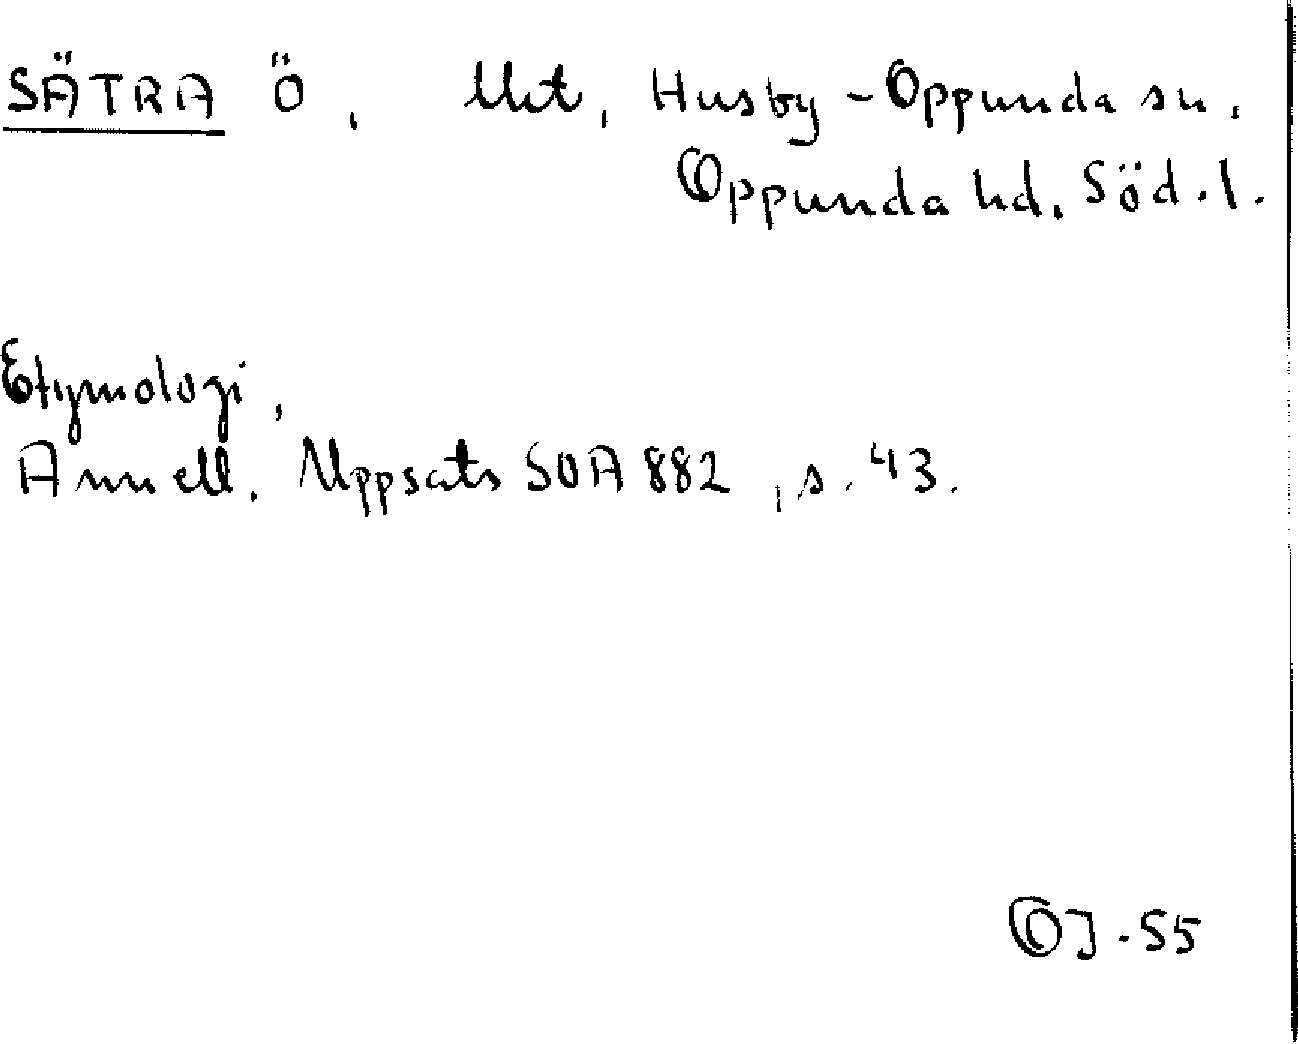 SÄTRA Ö, Unt, Husby-Oppunda sn.
Oppunda hd. Söd.l.
Etymologi,
Annell. Uppsats SOA 882, s. 43.
OJ.55